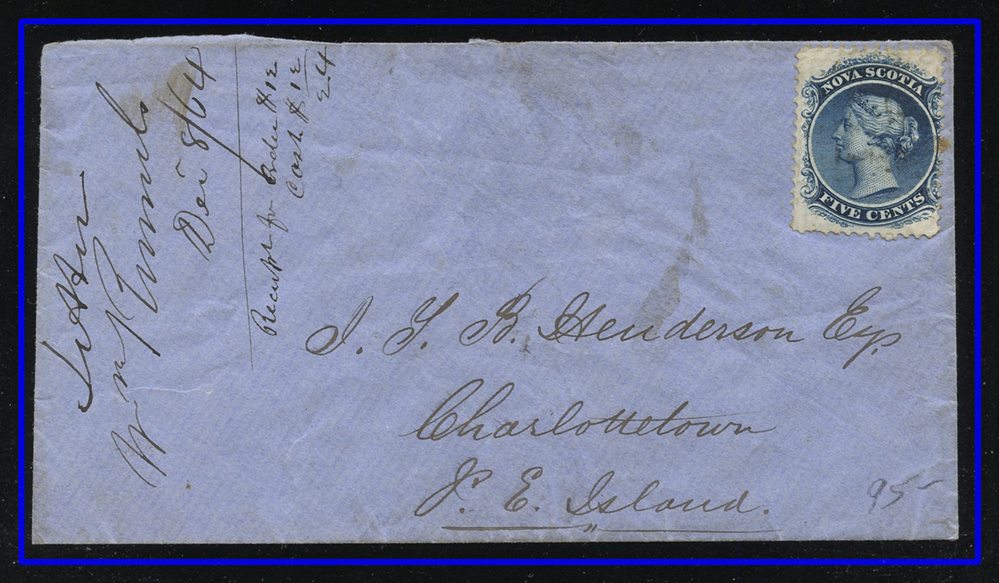 NOVA SCOTIA
FIVE CENTS
J. S. B. Henderson Esq.
Charlottetown
P. E. Island.
95-
Letter
Wm
Dec 8/64
Receipt for Order $12
Cash $12
24